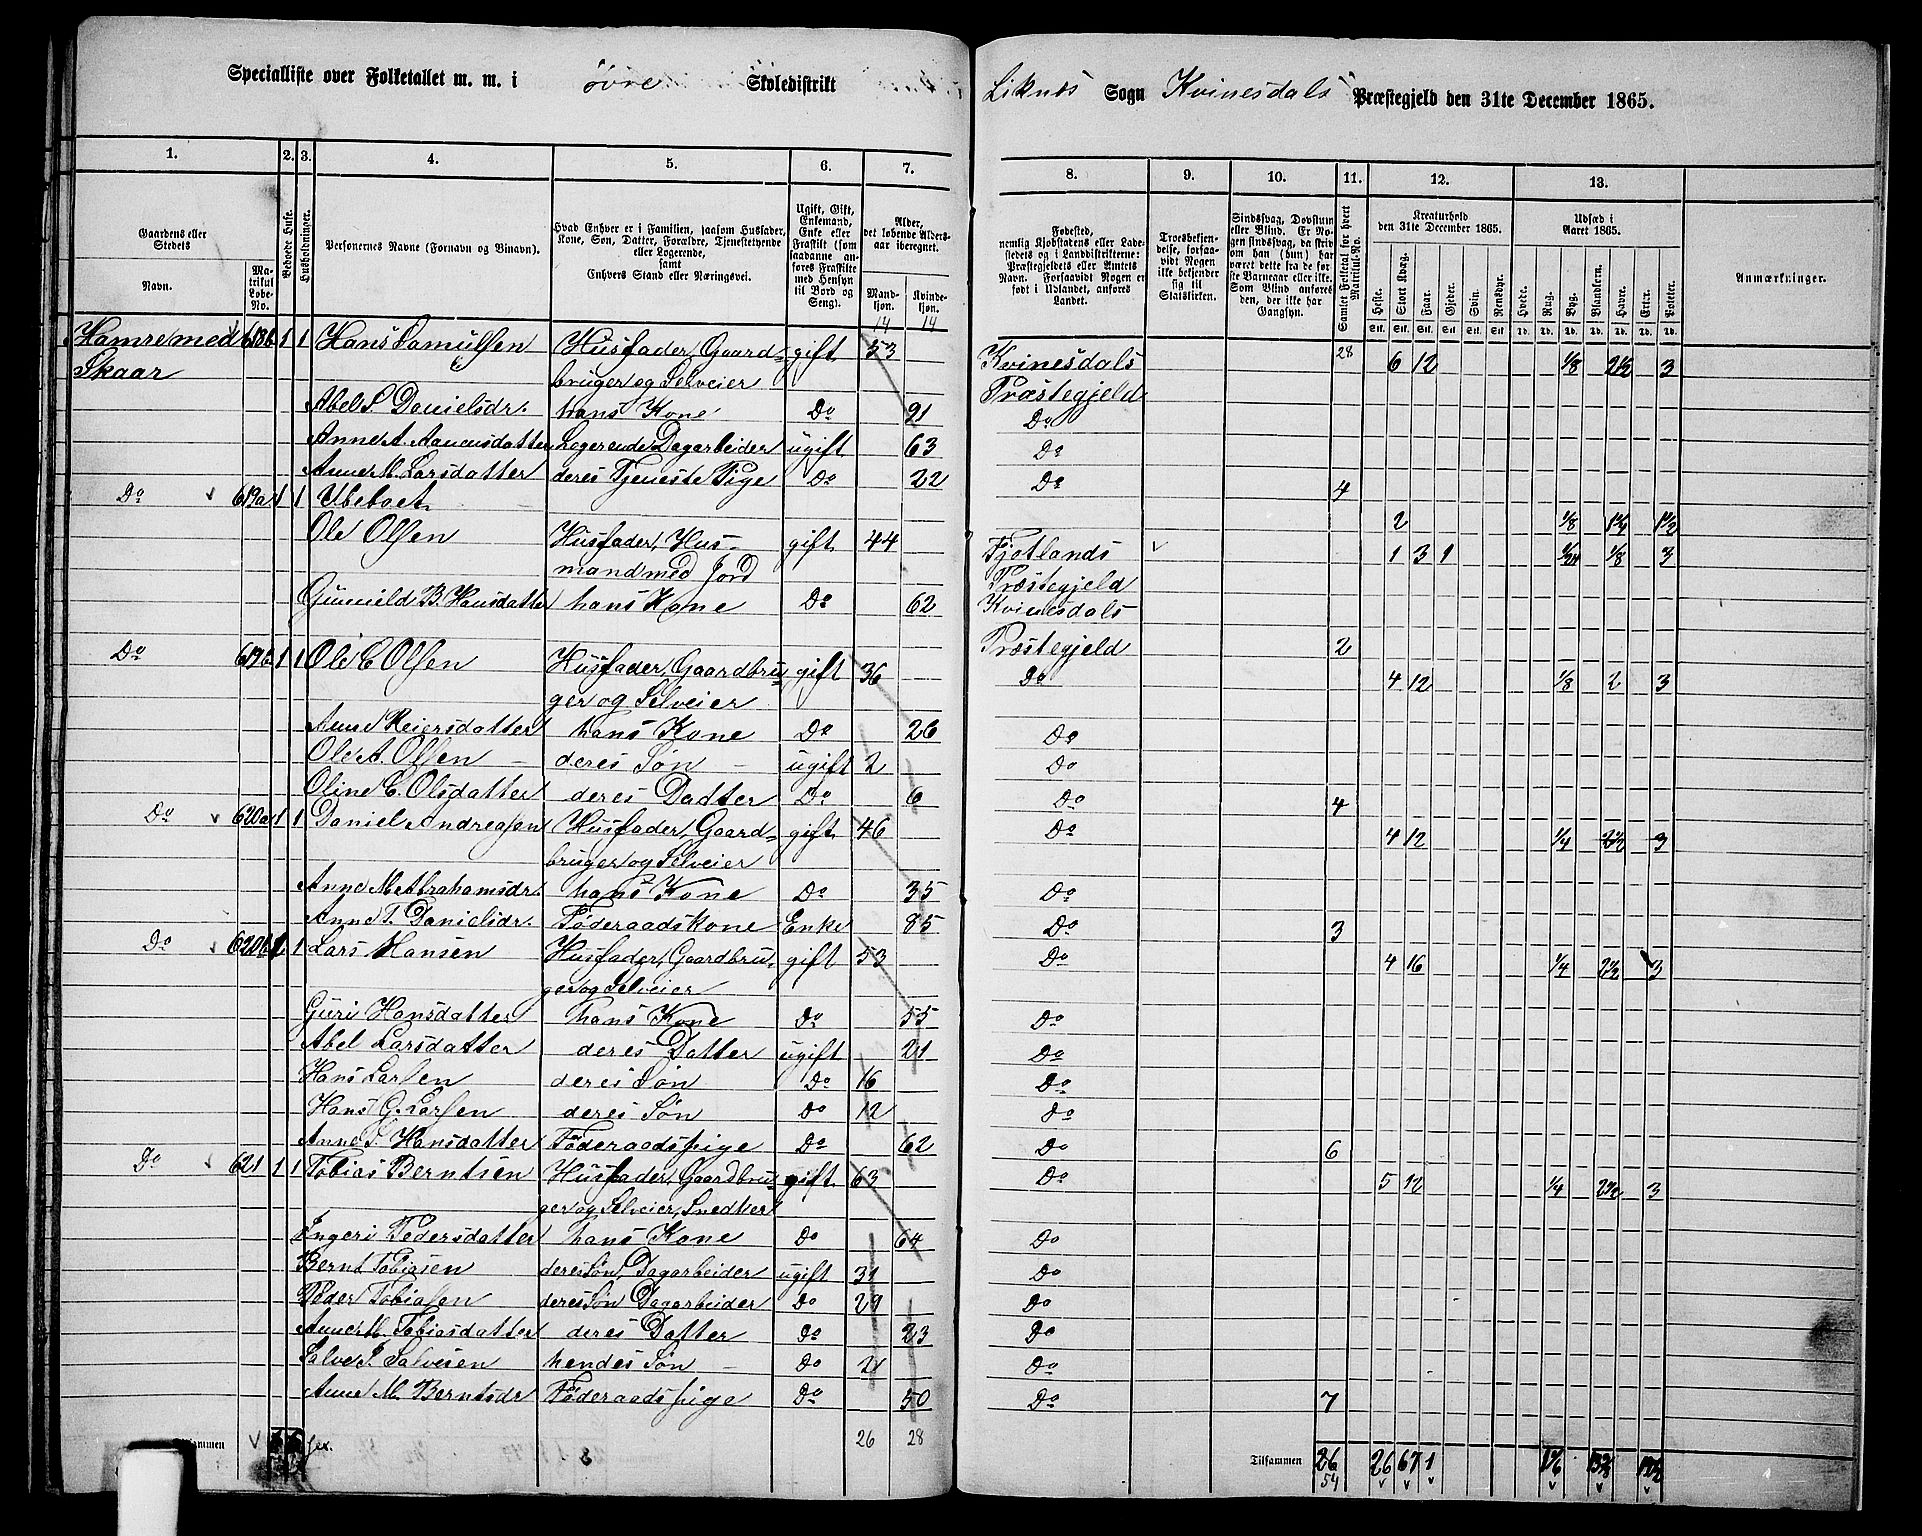 Specialliste over Folketallet m. m. i øvre Skoledistrikt Liknæs Sogn Kvinesdals Præstegjeld den 31te December 1865.
1. 2. 3. 4. 5. 6. 7. 8. 9. 10. 11. 12. 13.
Gaardens eller Stedets
Navn. Matrikul Løbe-No.
Beboede Huse.
Husholdninger.
Personernes Navne (Fornavn og Binavn).
Hvad Enhver er i Familien, saasom Husfader, Kone, Søn, Datter, Forældre, Tjenestetyende eller Logerende, samt Enhvers Stand eller Næringsvei.
Ugift, Gift, Enkemand, Enke eller Fraskilt (som saadanne anføres Fraskilte med Hensyn til Bord og Seng).
Alder, det løbende Aldersaar iberegnet.
Mandkjøn. Kvindekjøn.
Fødested, nemlig Kjøbstadens eller Ladestedets og i Landdistrikterne: Præstegjeldets eller Amtets Navn. Forsaavidt Nogen er født i Udlandet, anføres Landet.
Troesbekjendelse, forsaavidt Nogen ikke bekjender sig til Statskirken.
Sindssvag, Døvstum eller Blind. Er Nogen sindssvag, da skrives om han (hun) har været dette fra de første Barneaar eller ikke. Som Blind anføres den, der ikke har Gangsyn.
Samlet Folketal for hvert Matrikul-No.
Kreaturhold den 31te December 1865.
Heste. Stort Kvæg. Faar. Gjeder. Svin. Rensdyr.
Udsæd i Aaret 1865.
Hvede. Rug. Byg. Blandkorn. Havre. Erter. Poteter.
Anmærkninger.
14 14
Hamre med 618b 1 1 Hans Samuelsen Husfader, Gaard- gift 53 Kvinesdals 28 6 12 1/8 2 1/2 3
Skaar bruger og Selveier Præstegjeld
Abel S. Danielsdr. hans Kone Do 91 Do
Anne A. Aanensdatter Logerende Dagarbeider ugift 63 Do
Anne M. Larsdatter deres Tjeneste Pige Do 22 Do 4
Do 619a 1 1 Ubeboet 2 1/8 1 1/2
Ole Olsen Husfader, Hus- gift 44 Fjotlands 1 3 1 1/8 3
mand med Jord Præstegjeld
Gunnild B. Hansdatter hans Kone Do 62 Kvinesdals
Præstegjeld 2
Do 619b 1 1 Ole E Olsen Husfader, Gaardbru- gift 36 Do 4 12 1/8 2 3
ger og Selveier
Anne Reiersdatter hans Kone Do 26 Do
Ole A. Olsen deres Søn ugift 2 Do
Oline E. Olsdatter deres Datter Do 6 Do 4
Do 620a 1 1 Daniel Andreasen Husfader, Gaard- gift 46 Do 4 12 1/4 2 1/2 3
bruger og Selveier
Anne M Abrahamsdr. hans Kone Do 35 Do
Anne T. Danielsdr. Føderaadskone Enke 85 Do 3
Do 620b 1 1 Lars Hansen Husfader, Gaardbru- gift 53 Do 4 16 1/4 2 1/2 3
ger og Selveier
Guri Hansdatter hans Kone Do 55 Do
Abel Larsdatter deres Datter ugift 21 Do
Hans Larsen deres Søn Do 16 Do
Hans G. Larsen deres Søn Do 12 Do
Anne S. Hansdatter Føderaadspige Do 62 Do 6
Do 621 1 1 Tobias Berntsen Husfader, Gaardbru- gift 63 Do 5 12 1/4 2 1/2 3
ger og Selveier, Snedker
Ingeri Pedersdatter hans Kone Do 64 Do
Bernt Tobiasen deres Søn, Dagarbeider ugift 31 Do
Peder Tobiasen deres Søn Dagarbeider Do 29 Do
Anne M. Tobiasdatter deres Datter Do 23 Do
Salve S. Salvesen hendes Søn Do 2 Do
Anne M. Berntsdr Føderaadspige Do 50 Do 7
Tilsammen 26 28 Tilsammen 26 26 67 1
54